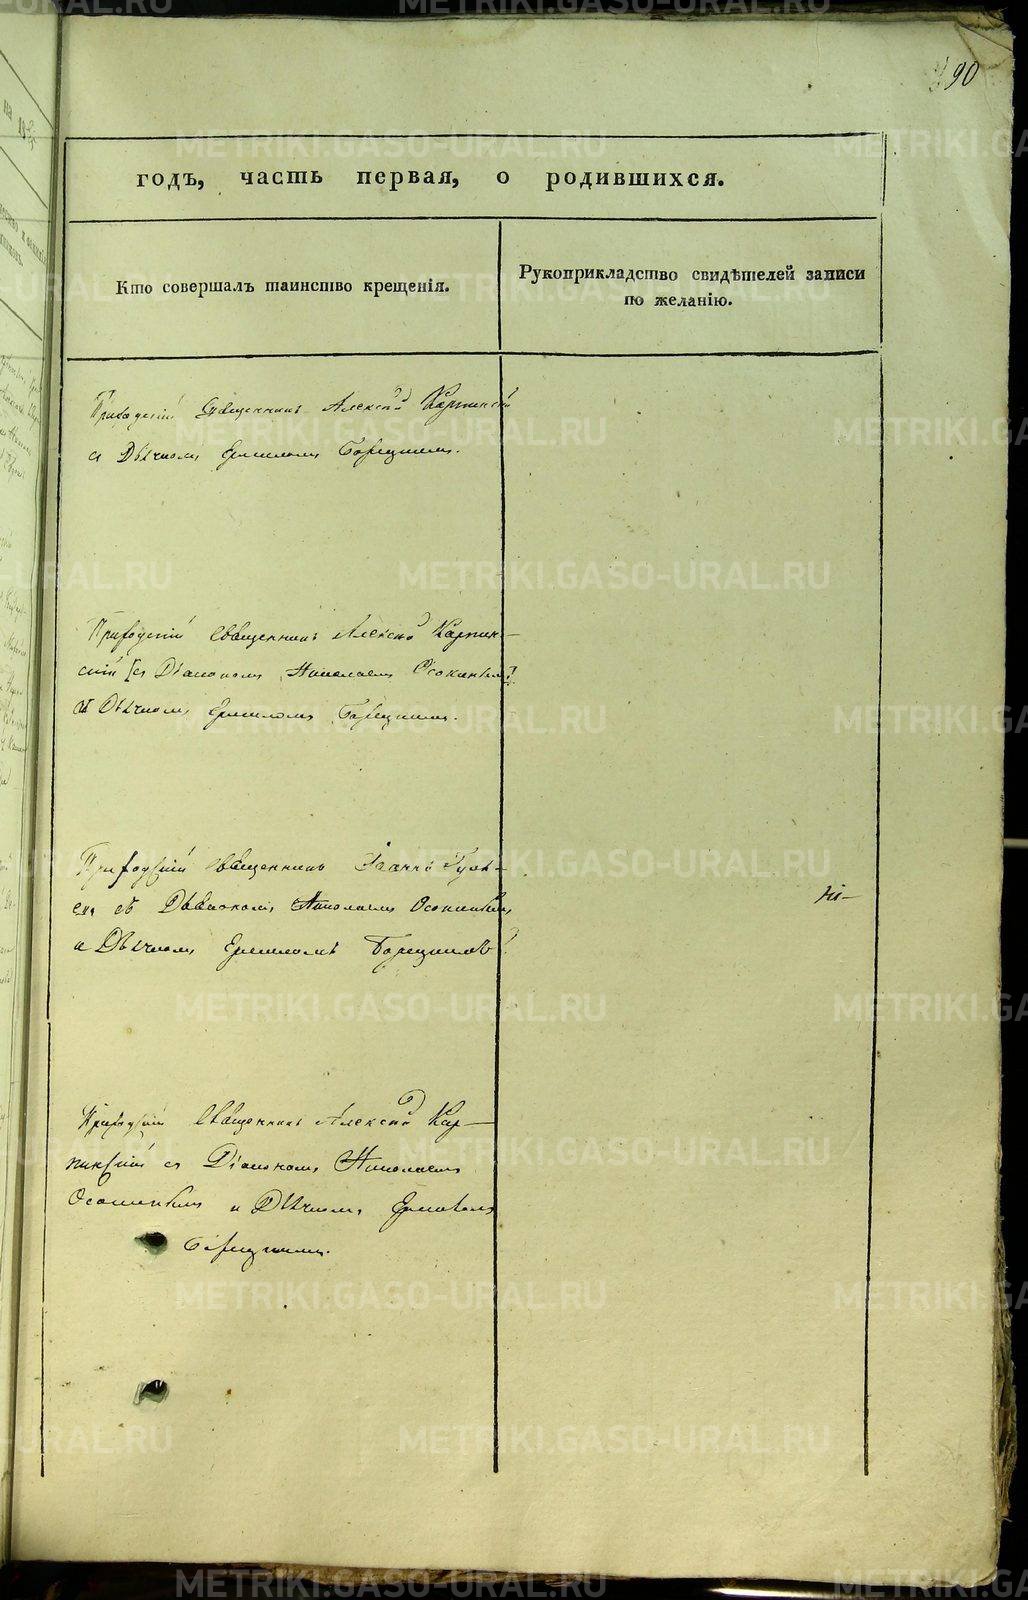 90
годъ, часть первая, о родившихся.
Кто совершалъ таинство крещенія.
Рукоприкладство свидѣтелей записи
по желанію.
Приходскій Священникъ Алексѣй Карпинскій
съ Дьячкомъ Ермиломъ Борецкимъ.
Приходскій Священникъ Алексѣй Карпин-
скій [съ Діакономъ Николаемъ Осокинымъ]
и Дьячкомъ Ермиломъ Борецкимъ.
Приходскій Священникъ Іоаннъ
съ Діакономъ Николаемъ Осокинымъ
и Дьячкомъ Ермиломъ Борецкимъ
Приходскій Священникъ Алексѣй Кар-
пинскій съ Діакономъ Николаемъ
Осокинымъ и Дьячкомъ Ермиломъ
Борецкимъ.
METRIKI.GASO-URAL.RU